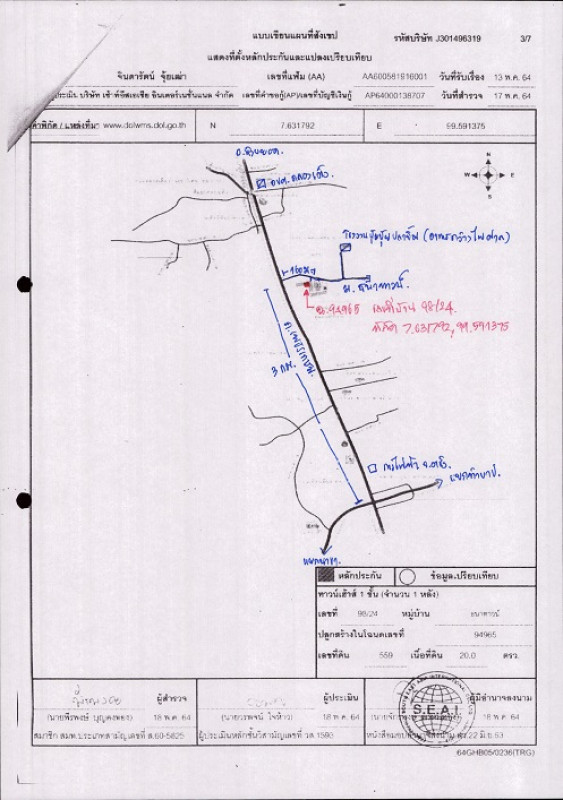 แบบเขียนแผนที่สังเขป
รหัสบริษัท J301496319
3/7
แสดงที่ตั้งหลักประกันและแปลงเปรียบเทียบ
จินดารัตน์ จุ้ยเฒ่า เลขที่แฟ้ม (AA) AA600581916001 วันที่รับเรื่อง 13 พ.ค. 64
บริษัท เซ้าท์อีสเอเชีย อินเตอร์เนชั่นแนล จำกัด เลขที่คำขอกู้(AP)/เลขที่บัญชีเงินกู้ AP64000138707 วันที่สำรวจ 17 พ.ค. 64
ค่าพิกัด / แหล่งที่มา www.dolwms.dol.go.th N 7.631792 E 99.591375
อ.ห้วยยอด
N
W E
S
ม.ธนาภรณ์
ฉ.94965 เลขที่บ้าน 98/24
พิกัด 7.631792, 99.591375
ถ.เพชรเกษม
3 กม.
หลักประกัน ข้อมูลเปรียบเทียบ
ทาวน์เฮ้าส์ 1 ชั้น (จำนวน 1 หลัง)
เลขที่ 98/24 หมู่บ้าน ธนาภรณ์
ปลูกสร้างในโฉนดเลขที่ 94965
เลขที่ดิน 559 เนื้อที่ดิน 20.0 ตรว.
ผู้สำรวจ ผู้ประเมิน ผู้มีอำนาจลงนาม
(นายพีรพงษ์ บุญคงทอง) 18 พ.ค. 64 (นายวรพจน์ ใจห้าว) 18 พ.ค. 64 18 พ.ค. 64
สมาชิก สมท.ประเภทสามัญ เลขที่ ส.60-5825 ผู้ประเมินหลักชั้นวิสามัญเลขที่ วส.1593 22 มิ.ย.63
S.E.A.I.
64GHB05/0236(TRG)